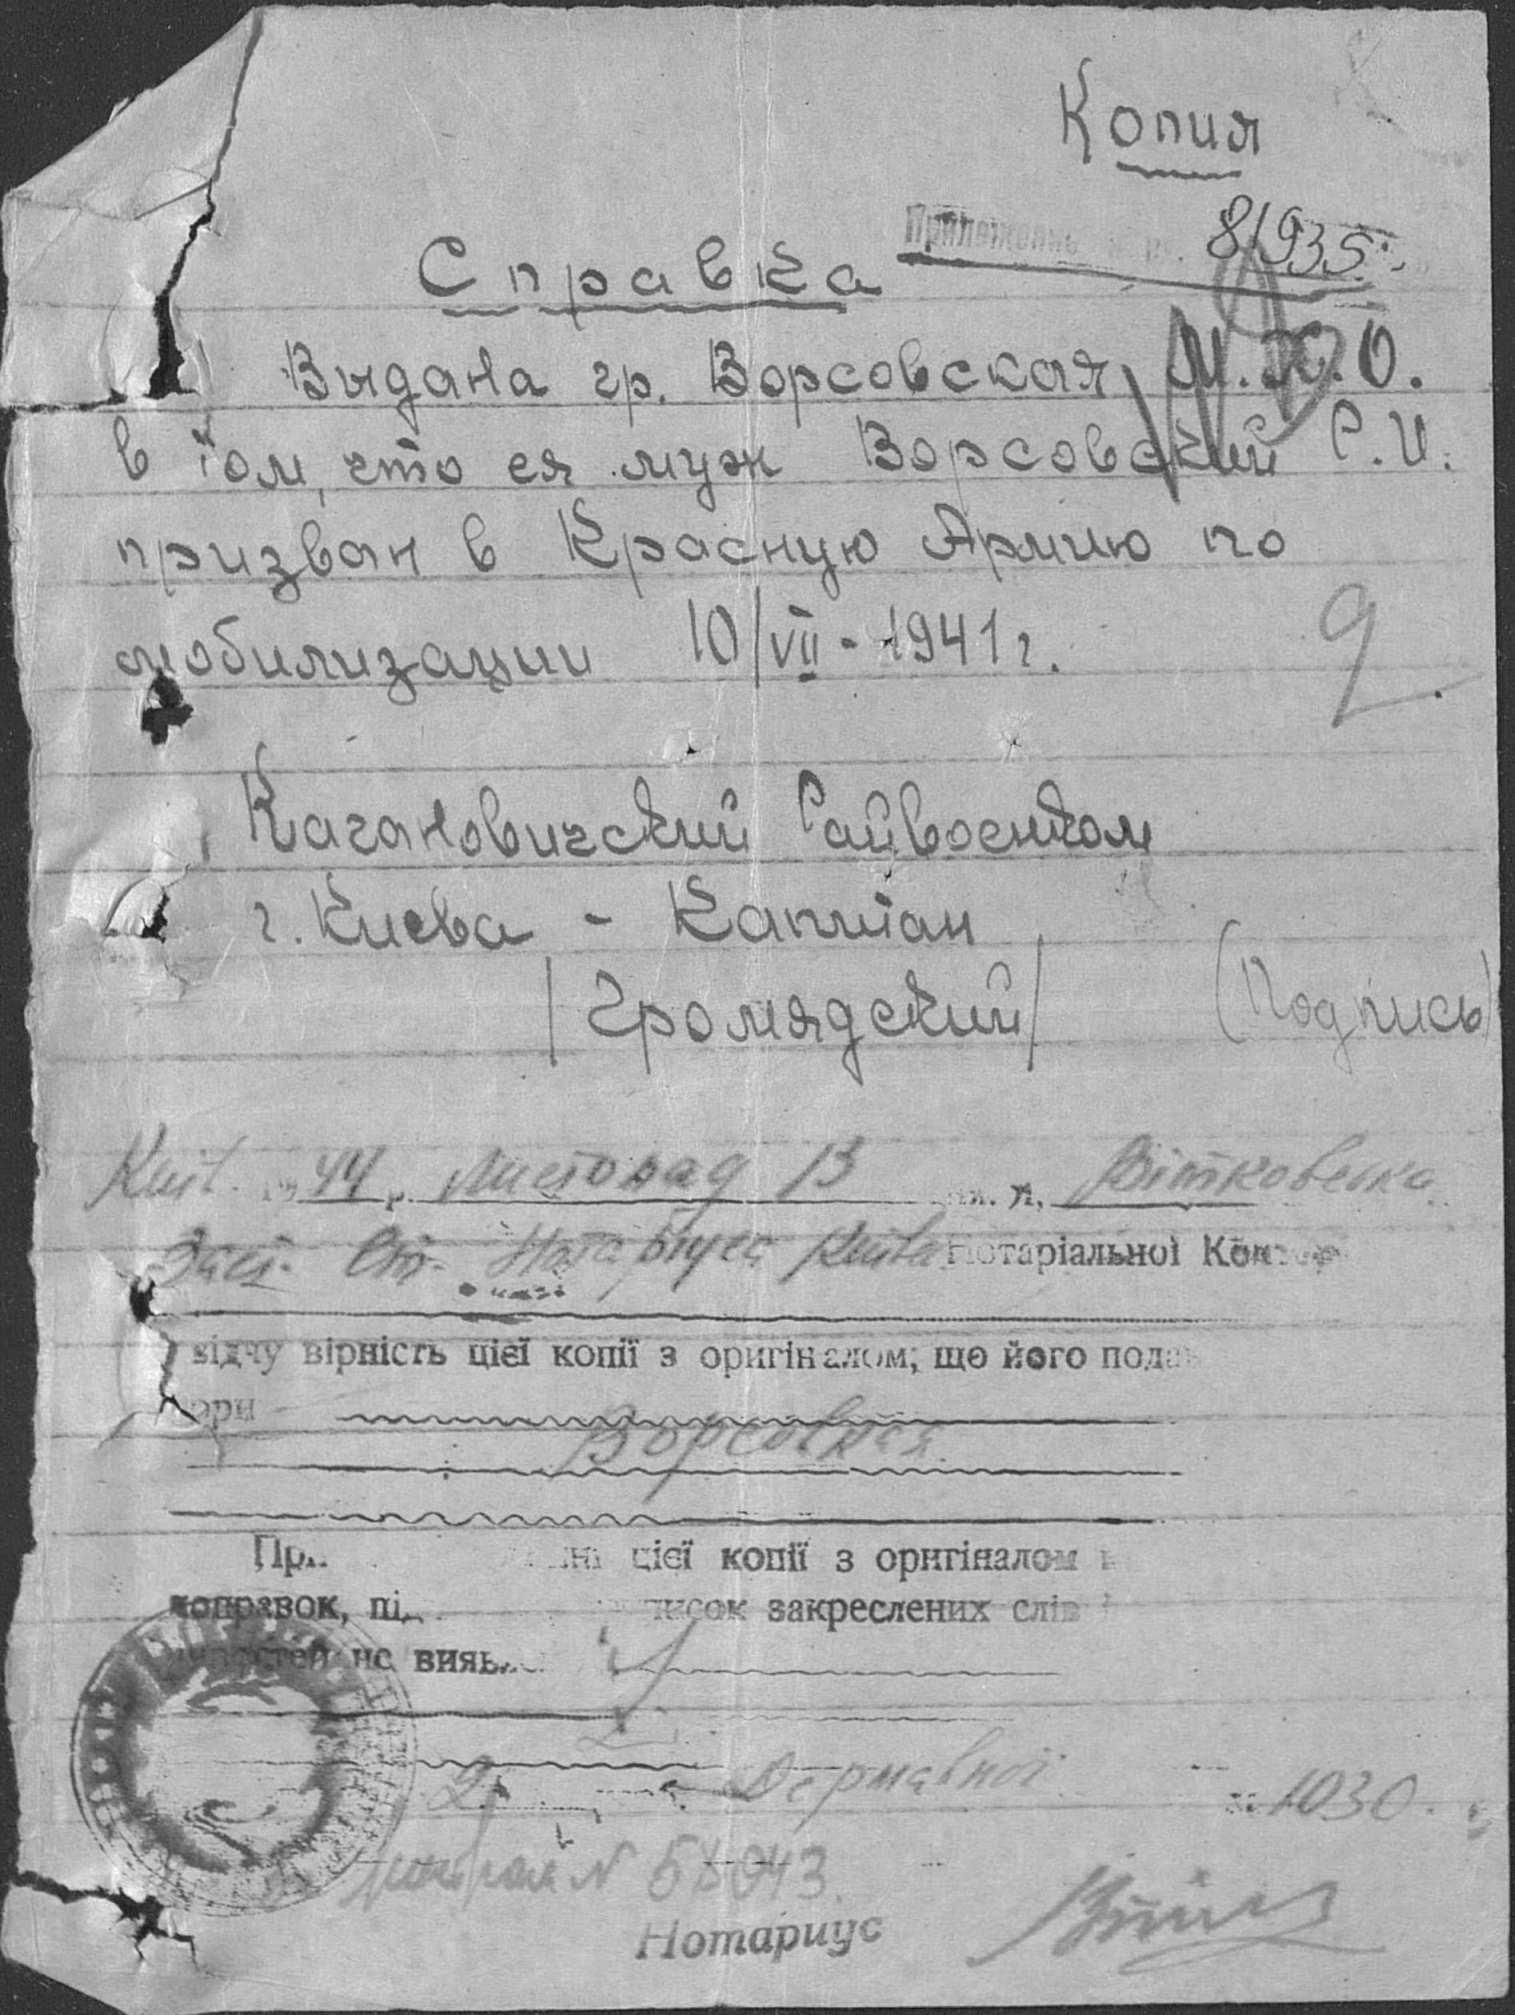 Копия
Приложение 81935
Справка
Выдана гр. Ворсовская М.Х.О.
в том, что ея муж Ворсовский С.И.
призван в Красную Армию по
мобилизации 10/VII - 1941 г.
2
Кагановичский Райвоенком
г. Киева - Капитан
/Громядский/ (Подпись)
Київ. 1944 р. Листопад 13 дня. Я, Вітковська
Заст. Ст. Нотаріуса Київ Нотаріальної Кон
відчу вірність цієї копії з оригіналом, що його пода
Ворсовская
При цієї копії з оригіналом
поправок, під писок закреслених слів
не виявл
2 Державної 1030.
N
Нотариус